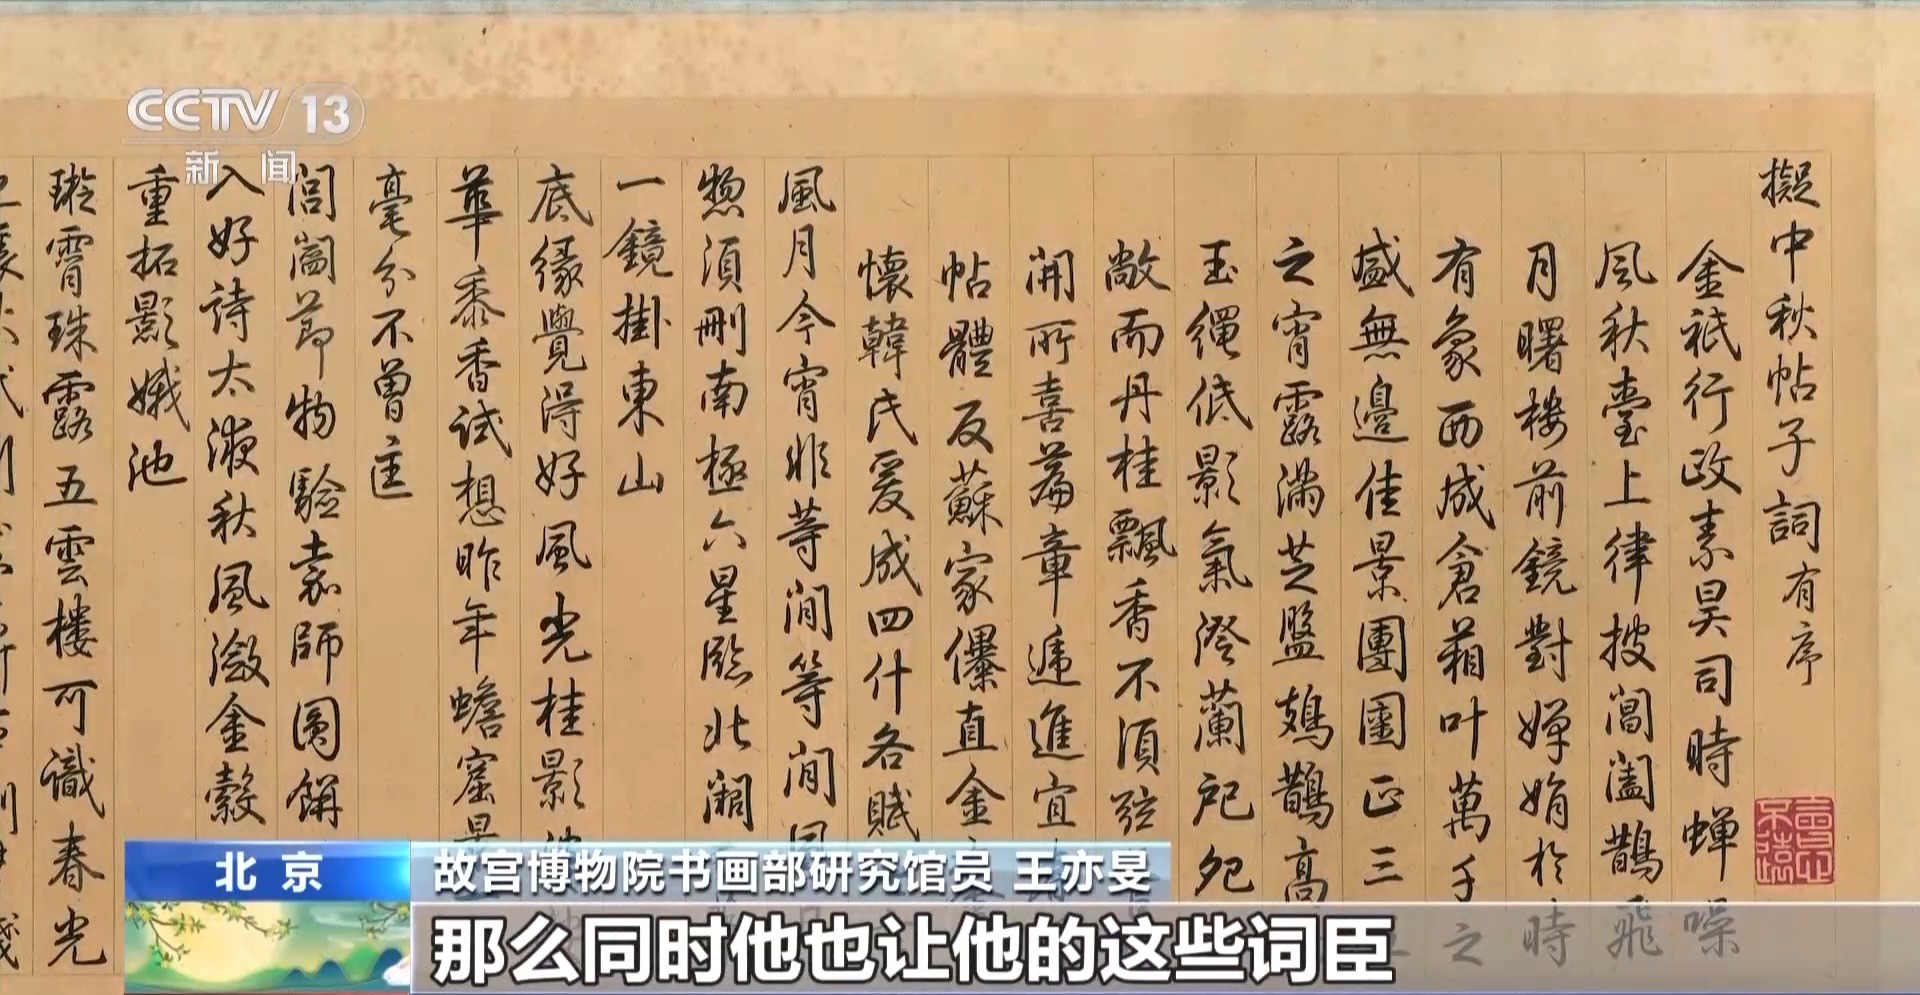 CCTV 13
新闻
擬中秋帖子詞有序
會心不遠
金祇行政素昊司時蟬噪
風秋臺上律披閶闔鵲飛
月曙樓前鏡對嬋娟於時
有象西成倉箱叶萬千之
盛無邊佳景團圞正三
之宵露滿芝盤鳷鵲高
玉繩低影氣澄蘭戺兔
敞而丹桂飄香不須弦
開所喜篇章遞進宜
帖體反蘇家儤直金
懷韓氏爰成四什各賦
風月今宵非等閒等閒
惣須刪南極六星臨北闕
一鏡掛東山
底緣覺得好風光桂影
華黍香試想昨年蟾窟
毫分不曾
閶闔節物驗袁師圓餅
入好詩太液秋風瀲金縠
重拓影娥池
璇霄珠露五雲樓可識春光
北京
故宫博物院书画部研究馆员 王亦旻
那么同时他也让他的这些词臣